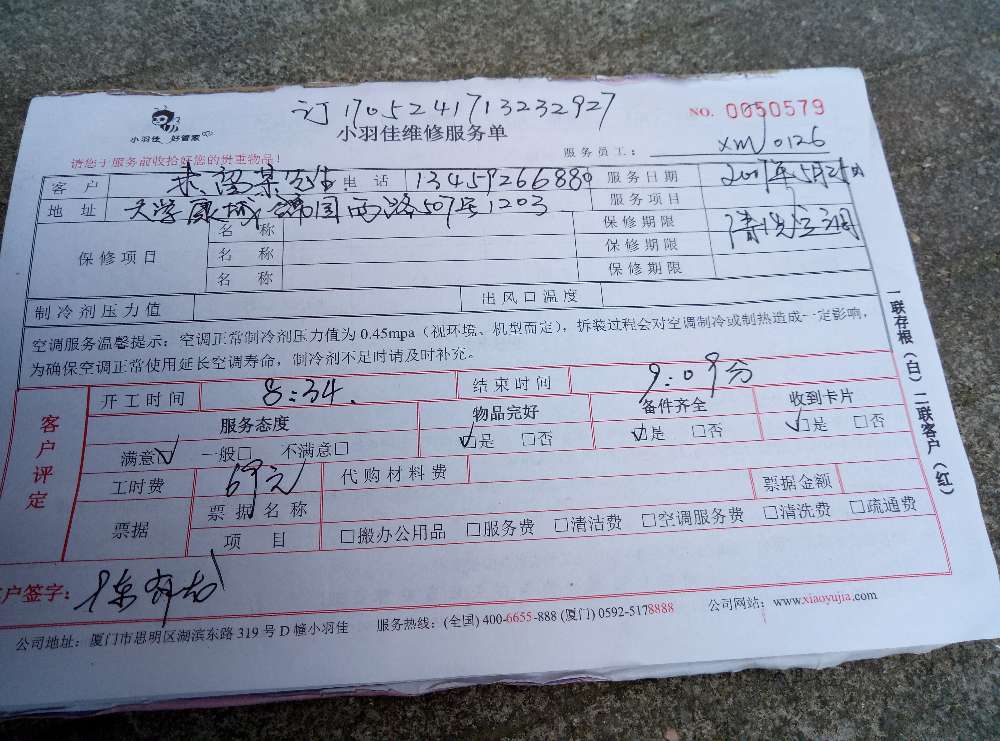 小羽佳 好管家
订170524171323292​7
NO. 0050579
小羽佳维修服务单
服务员工： xm0126
请您于服务前收拾好您的贵重物品！
客户 先生 电话 13459266889 服务日期 2017年5月25日
地址 大学康城 西路507号1203 服务项目 清洗空调
保修项目 名称 保修期限
名称 保修期限
名称 保修期限
制冷剂压力值 出风口温度
空调服务温馨提示：空调正常制冷剂压力值为0.45mpa（视环境、机型而定），拆装过程会对空调制冷或制热造成一定影响，
为确保空调正常使用延长空调寿命，制冷剂不足时请及时补充。
客户评定
开工时间 8:34. 结束时间 9:09分
服务态度 物品完好 备件齐全 收到卡片
满意☑ 一般□ 不满意□ ☑是 □否 ☑是 □否 ☑是 □否
工时费 69元 代购材料费 票据金额
票据 票据名称
项目 □搬办公用品 □服务费 □清洁费 □空调服务费 □清洗费 □疏通费
户签字：
公司地址：厦门市思明区湖滨东路319号D幢小羽佳 服务热线：(全国) 400-6655-888 (厦门) 0592-5178888 公司网站：www.xiaoyujia.com
一联存根（白）二联客户（红）